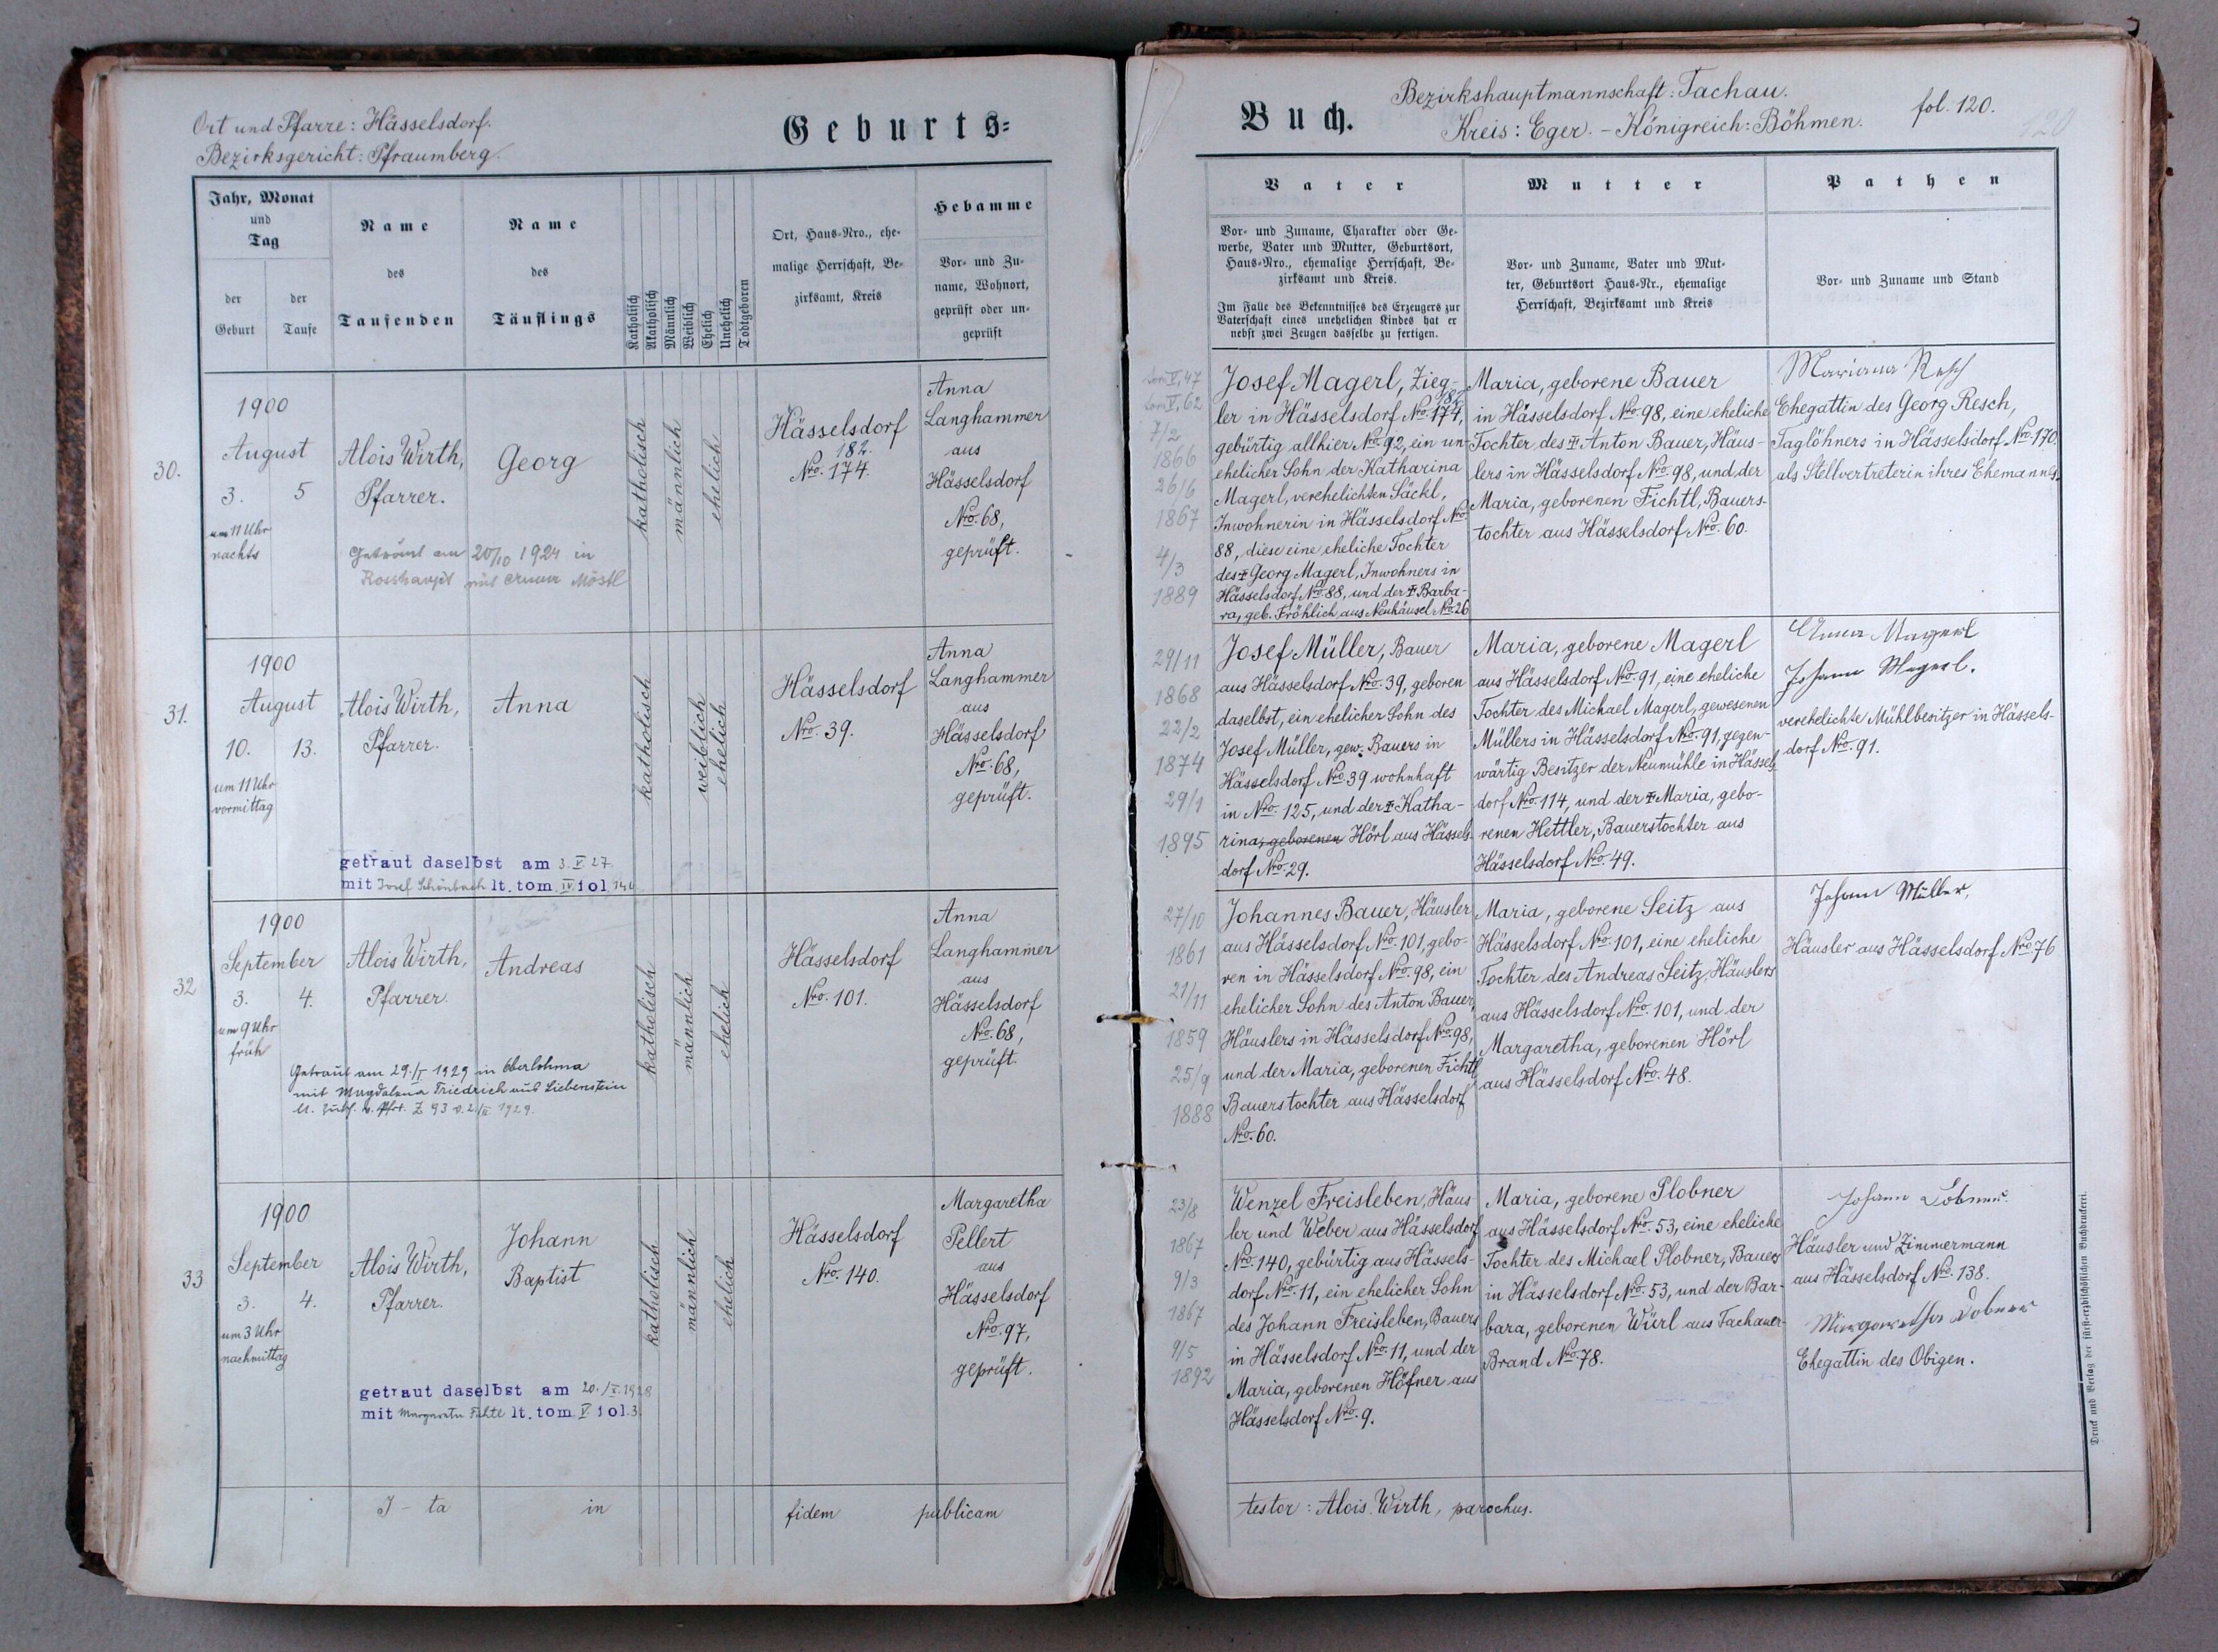 Ort und Pfarre: Hässelsdorf.
Bezirksgericht: Pfraumberg.
Geburts=
Jahr, Monat
und
Tag
der
Geburt
der
Taufe
Name
des
Taufenden
Name
des
Täuflings
Katholisch
Akatholisch
Männlich
Weiblich
Ehelich
Unehelich
Todtgeboren
Ort, Haus=Nro., ehe=
malige Herrschaft, Be=
zirksamt, Kreis
Hebamme
Vor= und Zu=
name, Wohnort,
geprüft oder un=
geprüft
30.
1900
August
3. 5
um 11 Uhr
nachts
Alois Wirth,
Pfarrer.
Georg
katholisch
männlich
ehelich
Hässelsdorf
182.
Nro. 174.
Anna
Langhammer
aus
Hässelsdorf
Nro. 68,
geprüft.
Getraut am 20/10 1924 in
Rosshaupt mit Anna Möstl
31.
1900
August
10. 13.
um 11 Uhr
vormittag
Alois Wirth,
Pfarrer.
Anna
katholisch
weiblich
ehelich
Hässelsdorf
Nro. 39.
Anna
Langhammer
aus
Hässelsdorf
Nro. 68,
geprüft.
getraut daselbst am 3. V. 27.
mit Josef Schönbach lt. tom. IV. fol
32
1900
September
3. 4.
um 9 Uhr
früh
Alois Wirth,
Pfarrer.
Andreas
katholisch
männlich
ehelich
Hässelsdorf
Nro. 101.
Anna
Langhammer
aus
Hässelsdorf
Nro. 68,
geprüft.
Getraut am 29./I 1929 in Oberlohma
mit Magdalena Friedrich aus Liebenstein
Z 93 1929.
33
1900
September
3. 4.
um 3 Uhr
nachmittag
Alois Wirth,
Pfarrer.
Johann
Baptist
katholisch
männlich
ehelich
Hässelsdorf
Nro. 140.
Margaretha
Pellert
aus
Hässelsdorf
Nro. 97,
geprüft.
getraut daselbst am 20./ 1928
mit lt. tom V fol. 3.
J - ta in fidem publicam
Buch.
Bezirkshauptmannschaft: Tachau.
Kreis: Eger. - Königreich: Böhmen.
fol. 120.
120
Vater
Vor= und Zuname, Charakter oder Ge=
werbe, Vater und Mutter, Geburtsort,
Haus=Nro., ehemalige Herrschaft, Be=
zirksamt und Kreis.
Im Falle des Bekenntnisses des Erzeugers zur
Vaterschaft eines unehelichen Kindes hat er
nebst zwei Zeugen dasselbe zu fertigen.
Mutter
Vor= und Zuname, Vater und Mut=
ter, Geburtsort Haus=Nr., ehemalige
Herrschaft, Bezirksamt und Kreis
Pathen
Vor= und Zuname und Stand
7/2
1866
26/6
1867
4/3
1889
Josef Magerl, Zieg-
182
ler in Hässelsdorf Nro. 174,
gebürtig allhier Nro. 92, ein un-
ehelicher Sohn der Katharina
Magerl, verehelichten Säckl,
Inwohnerin in Hässelsdorf Nro.
88, diese eine eheliche Tochter
des ✝ Georg Magerl, Inwohners in
Hässelsdorf Nro. 88, und der ✝ Barba-
ra, geb. Fröhlich aus Neuhäusel Nro. 26
Maria, geborene Bauer
in Hässelsdorf Nro. 98, eine eheliche
Tochter des ✝ Anton Bauer, Häus-
lers in Hässelsdorf Nro. 98, und der
Maria, geborenen Fichtl, Bauers-
tochter aus Hässelsdorf Nro. 60.
Mariana Resch
Ehegattin des Georg Resch,
Taglöhners in Hässelsdorf Nro. 170.
als Stellvertreterin ihres Ehemannes.
29/11
1868
22/2
1874
29/1
1895
Josef Müller, Bauer
aus Hässelsdorf Nro. 39, geboren
daselbst, ein ehelicher Sohn des
Josef Müller, gew. Bauers in
Hässelsdorf Nro 39 wohnhaft
in Nro. 125, und der ✝ Katha-
rina, geborenen Hörl aus Hässels-
dorf Nro. 29.
Maria, geborene Magerl
aus Hässelsdorf Nro. 91, eine eheliche
Tochter des Michael Magerl, gewesenen
Müllers in Hässelsdorf Nro. 91, gegen-
wärtig Besitzer der Neumühle in Hässels-
dorf Nro. 114, und der ✝ Maria, gebo-
renen Hettler, Bauerstochter aus
Hässelsdorf Nro. 49.
Anna Magerl
Johann Magerl.
verehelichte Mühlbesitzer in Hässels-
dorf Nro. 91.
27/10
1861
21/11
1859
25/9
1888
Johannes Bauer, Häusler
aus Hässelsdorf Nro. 101, gebo-
ren in Hässelsdorf Nro. 98, ein
ehelicher Sohn des Anton Bauer,
Häuslers in Hässelsdorf Nro. 98,
und der Maria, geborenen Fichtl,
Bauerstochter aus Hässelsdorf
Nro. 60.
Maria, geborene Seitz aus
Hässelsdorf Nro. 101, eine eheliche
Tochter des Andreas Seitz, Häuslers
aus Hässelsdorf Nro. 101, und der
Margaretha, geborenen Hörl
aus Hässelsdorf Nro. 48.
Johann Müller,
Häusler aus Hässelsdorf Nro 76
23/8
1867
9/3
1867
9/5
1892
Wenzel Freisleben, Häus
ler und Weber aus Hässelsdorf
Nro. 140, gebürtig aus Hässels-
dorf Nro. 11, ein ehelicher Sohn
des Johann Freisleben, Bauers
in Hässelsdorf Nro. 11, und der
Maria, geborenen Höfner aus
Hässelsdorf Nro. 9.
Maria, geborene Plobner
aus Hässelsdorf Nro. 53, eine eheliche
Tochter des Michael Plobner, Bauers
in Hässelsdorf Nro. 53, und der Bar-
bara, geborenen Würl aus Tachauer-
Brand Nro. 78.
Johann Dobner.
Häusler und Zimmermann
aus Hässelsdorf Nro. 138.
Margaretha Dobner
Ehegattin des Obigen.
testor: Alois Wirth, parochus.
Druck und Verlag der fürst=erzbischöflichen Buchdruckerei.